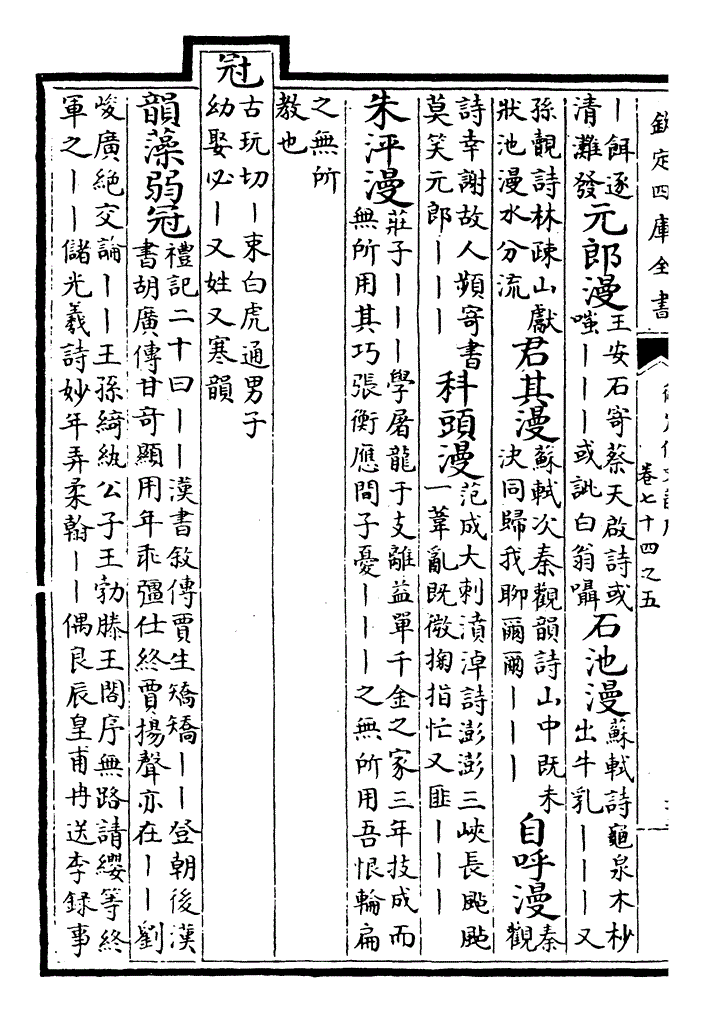 欽定四庫全書
卷七十四之五
｜餌逐
清灘發
元郎漫
王安石寄蔡天啟詩或
嗤｜｜｜或訿白翁囁
石池漫
蘇軾詩龜泉木杪
出牛乳｜｜｜又
孫覿詩林疎山獻
狀池漫水分流
君其漫
蘇軾次秦觀韻詩山中既未
決同歸我聊爾爾｜｜｜
自呼漫
秦
觀
詩幸謝故人頻寄書
莫笑元郎｜｜｜
科頭漫
范成大刺濆淖詩澎澎三峽長飐飐
一葦亂既微掬指忙又匪｜｜｜
朱泙漫
莊子｜｜｜學屠龍于支離益單千金之家三年技成而
無所用其巧張衡應間子憂｜｜｜之無所用吾恨輪扁
之無所
教也
冠
古玩切｜束白虎通男子
幼娶必｜又姓又寒韻
韻藻弱冠
禮記二十曰｜｜漢書敘傳賈生矯矯｜｜登朝後漢
書胡廣傳甘奇顯用年乖彊仕終賈揚聲亦在｜｜劉
峻廣絶交論｜｜王孫綺紈公子王勃滕王閣序無路請纓等終
軍之｜｜儲光羲詩妙年弄柔翰｜｜偶良辰皇甫冉送李録事